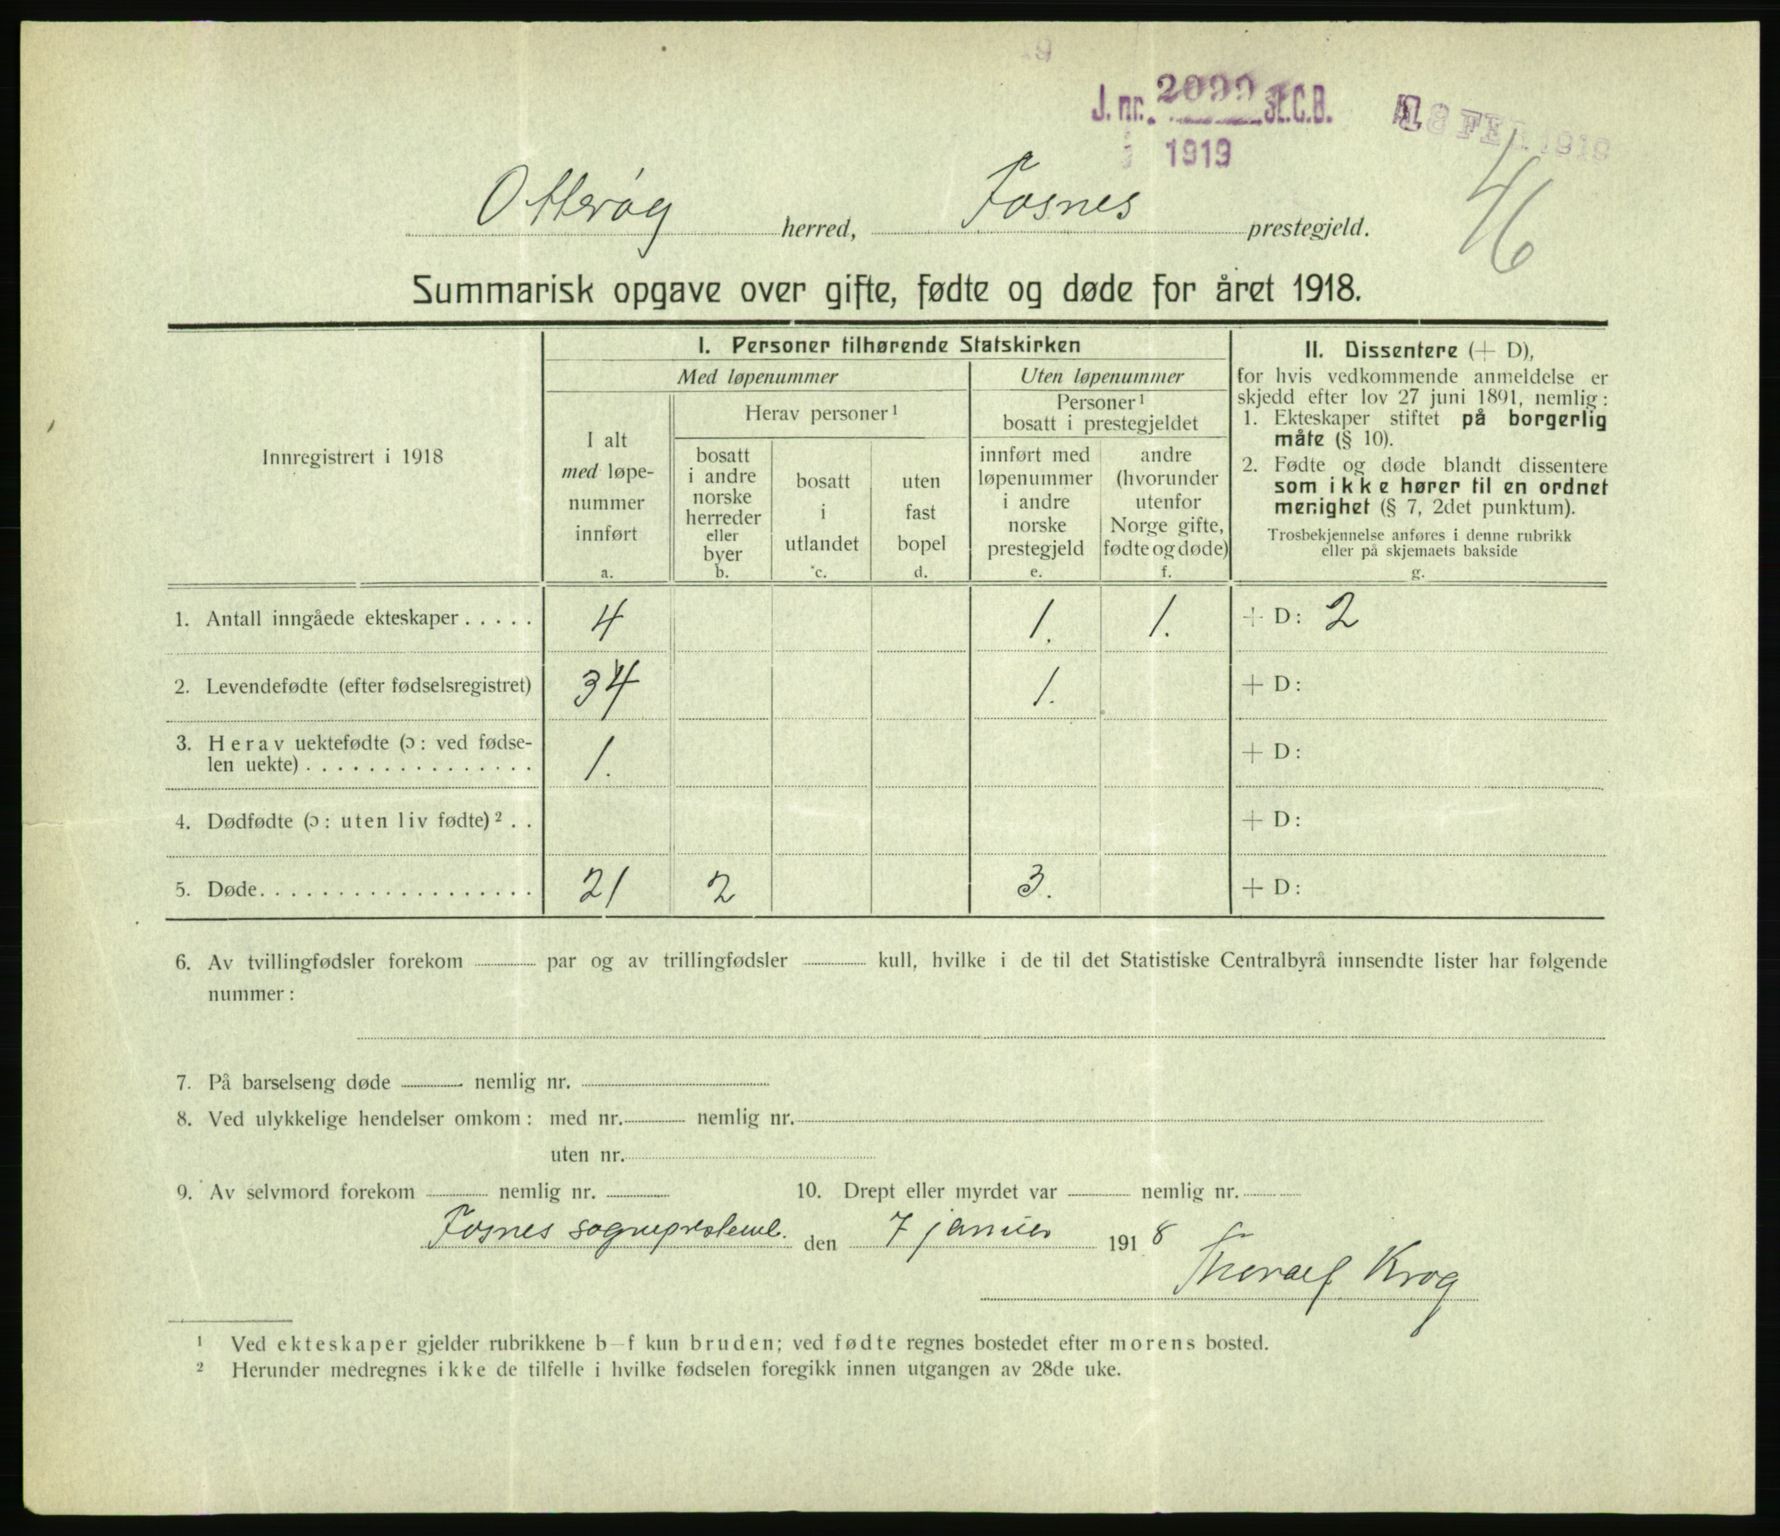 J. nr. 2099 St.C.B.
1919
8 FEB 1919
Otterøy herred, Fosnes prestegjeld.
46
Summarisk opgave over gifte, fødte og døde for året 1918.
Innregistrert i 1918
I. Personer tilhørende Statskirken
Med løpenummer
Uten løpenummer
I alt
med løpe-
nummer
innført
a.
Herav personer ¹
bosatt
i andre
norske
herreder
eller
byer
b.
bosatt
i
utlandet
c.
uten
fast
bopel
d.
Personer ¹
bosatt i prestegjeldet
innført med
løpenummer
i andre
norske
prestegjeld
e.
andre
(hvorunder
utenfor
Norge gifte,
fødte og døde)
f.
II. Dissentere (+ D),
for hvis vedkommende anmeldelse er
skjedd efter lov 27 juni 1891, nemlig:
1. Ekteskaper stiftet på borgerlig
måte (§ 10).
2. Fødte og døde blandt dissentere
som ikke hører til en ordnet
menighet (§ 7, 2det punktum).
Trosbekjennelse anføres i denne rubrikk
eller på skjemaets bakside
g.
1. Antall inngåede ekteskaper ..... 4 1. 1. + D: 2
2. Levendefødte (efter fødselsregistret) 34 1. + D:
3. Herav uektefødte (ɔ: ved fødse-
len uekte) ............... 1. + D:
4. Dødfødte (ɔ: uten liv fødte) ² .. + D:
5. Døde .................. 21 2 3. + D:
6. Av tvillingfødsler forekom par og av trillingfødsler kull, hvilke i de til det Statistiske Centralbyrå innsendte lister har følgende
nummer:
7. På barselseng døde nemlig nr.
8. Ved ulykkelige hendelser omkom: med nr. nemlig nr.
uten nr.
9. Av selvmord forekom nemlig nr. 10. Drept eller myrdet var nemlig nr.
Fosnes sogneprestemb. den 7 januar 1918
Thoralf Krog
¹ Ved ekteskaper gjelder rubrikkene b–f kun bruden; ved fødte regnes bostedet efter morens bosted.
² Herunder medregnes ikke de tilfelle i hvilke fødselen foregikk innen utgangen av 28de uke.